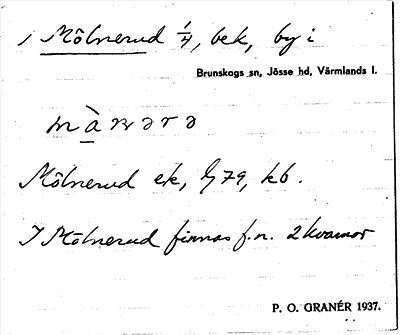 1 Mölnerud 1/4, bek, by i
Brunskogs sn, Jösse hd, Värmlands l.
Mölnerud ek, G79, kb.
I Mölnerud finnas f.n. 2 kvarnar
P. O. GRANÉR 1937.